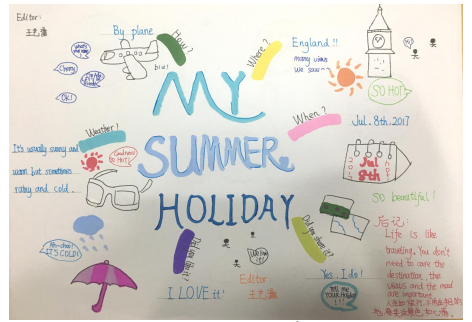 Editor:
By plane
How?
Where?
England!!
many views
We saw~~
SO HOT!
OK!
blue!
MY
SUMMER
HOLIDAY
When?
Jul. 8th. 2017
Jul
8th
Weather!
SO HOT!
It's usually sunny and
warm but sometimes
rainy and cold.
SO beautiful!
IT'S COLD!
Did you like it?
I LOVE it!
Did you share it?
Yes, I do!
Editor:
TELL ME
YOUR Holiday
!!!
后记:
Life is like
traveling. You don't
need to care the
destination, the
views and the mood
are important.